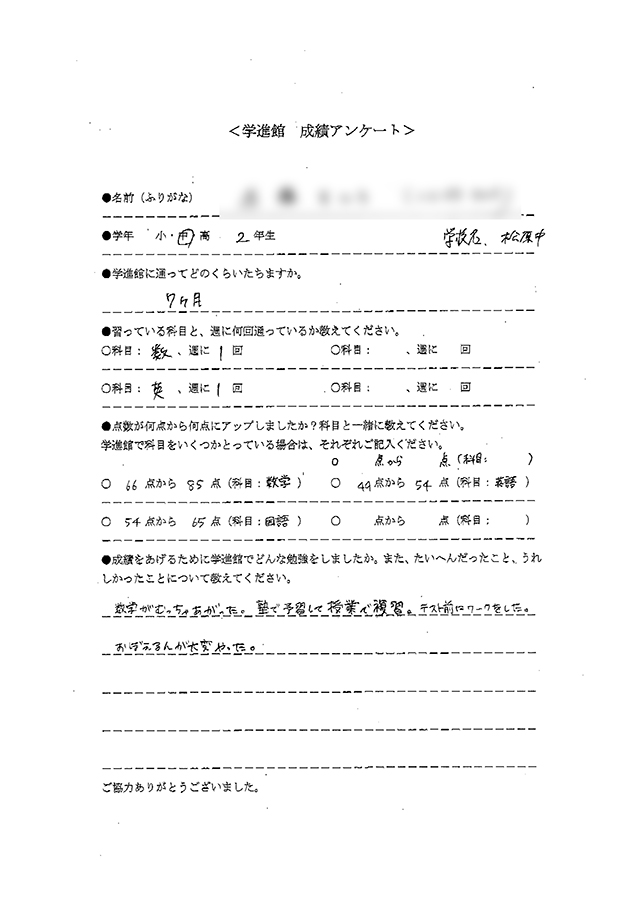 ＜学進館　成績アンケート＞
●名前（ふりがな）
●学年　小・中・高　2年生　学校名、松原中
●学進館に通ってどのくらいたちますか。
7ヶ月
●習っている科目と、週に何回通っているか教えてください。
〇科目：数、週に1回　〇科目：　、週に　回
〇科目：英、週に1回　〇科目：　、週に　回
●点数が何点から何点にアップしましたか？科目と一緒に教えてください。
学進館で科目をいくつかとっている場合は、それぞれご記入ください。
〇　点から　点（科目：　）
〇　66点から　85点（科目：数学）　〇　49点から　54点（科目：英語）
〇　54点から　65点（科目：国語）　〇　点から　点（科目：　）
●成績をあげるために学進館でどんな勉強をしましたか。また、たいへんだったこと、うれ
しかったことについて教えてください。
数学がむっちゃあがった。塾で予習して授業で複習。テスト前にワークをした。
おぼえるんが大変やった。
ご協力ありがとうございました。